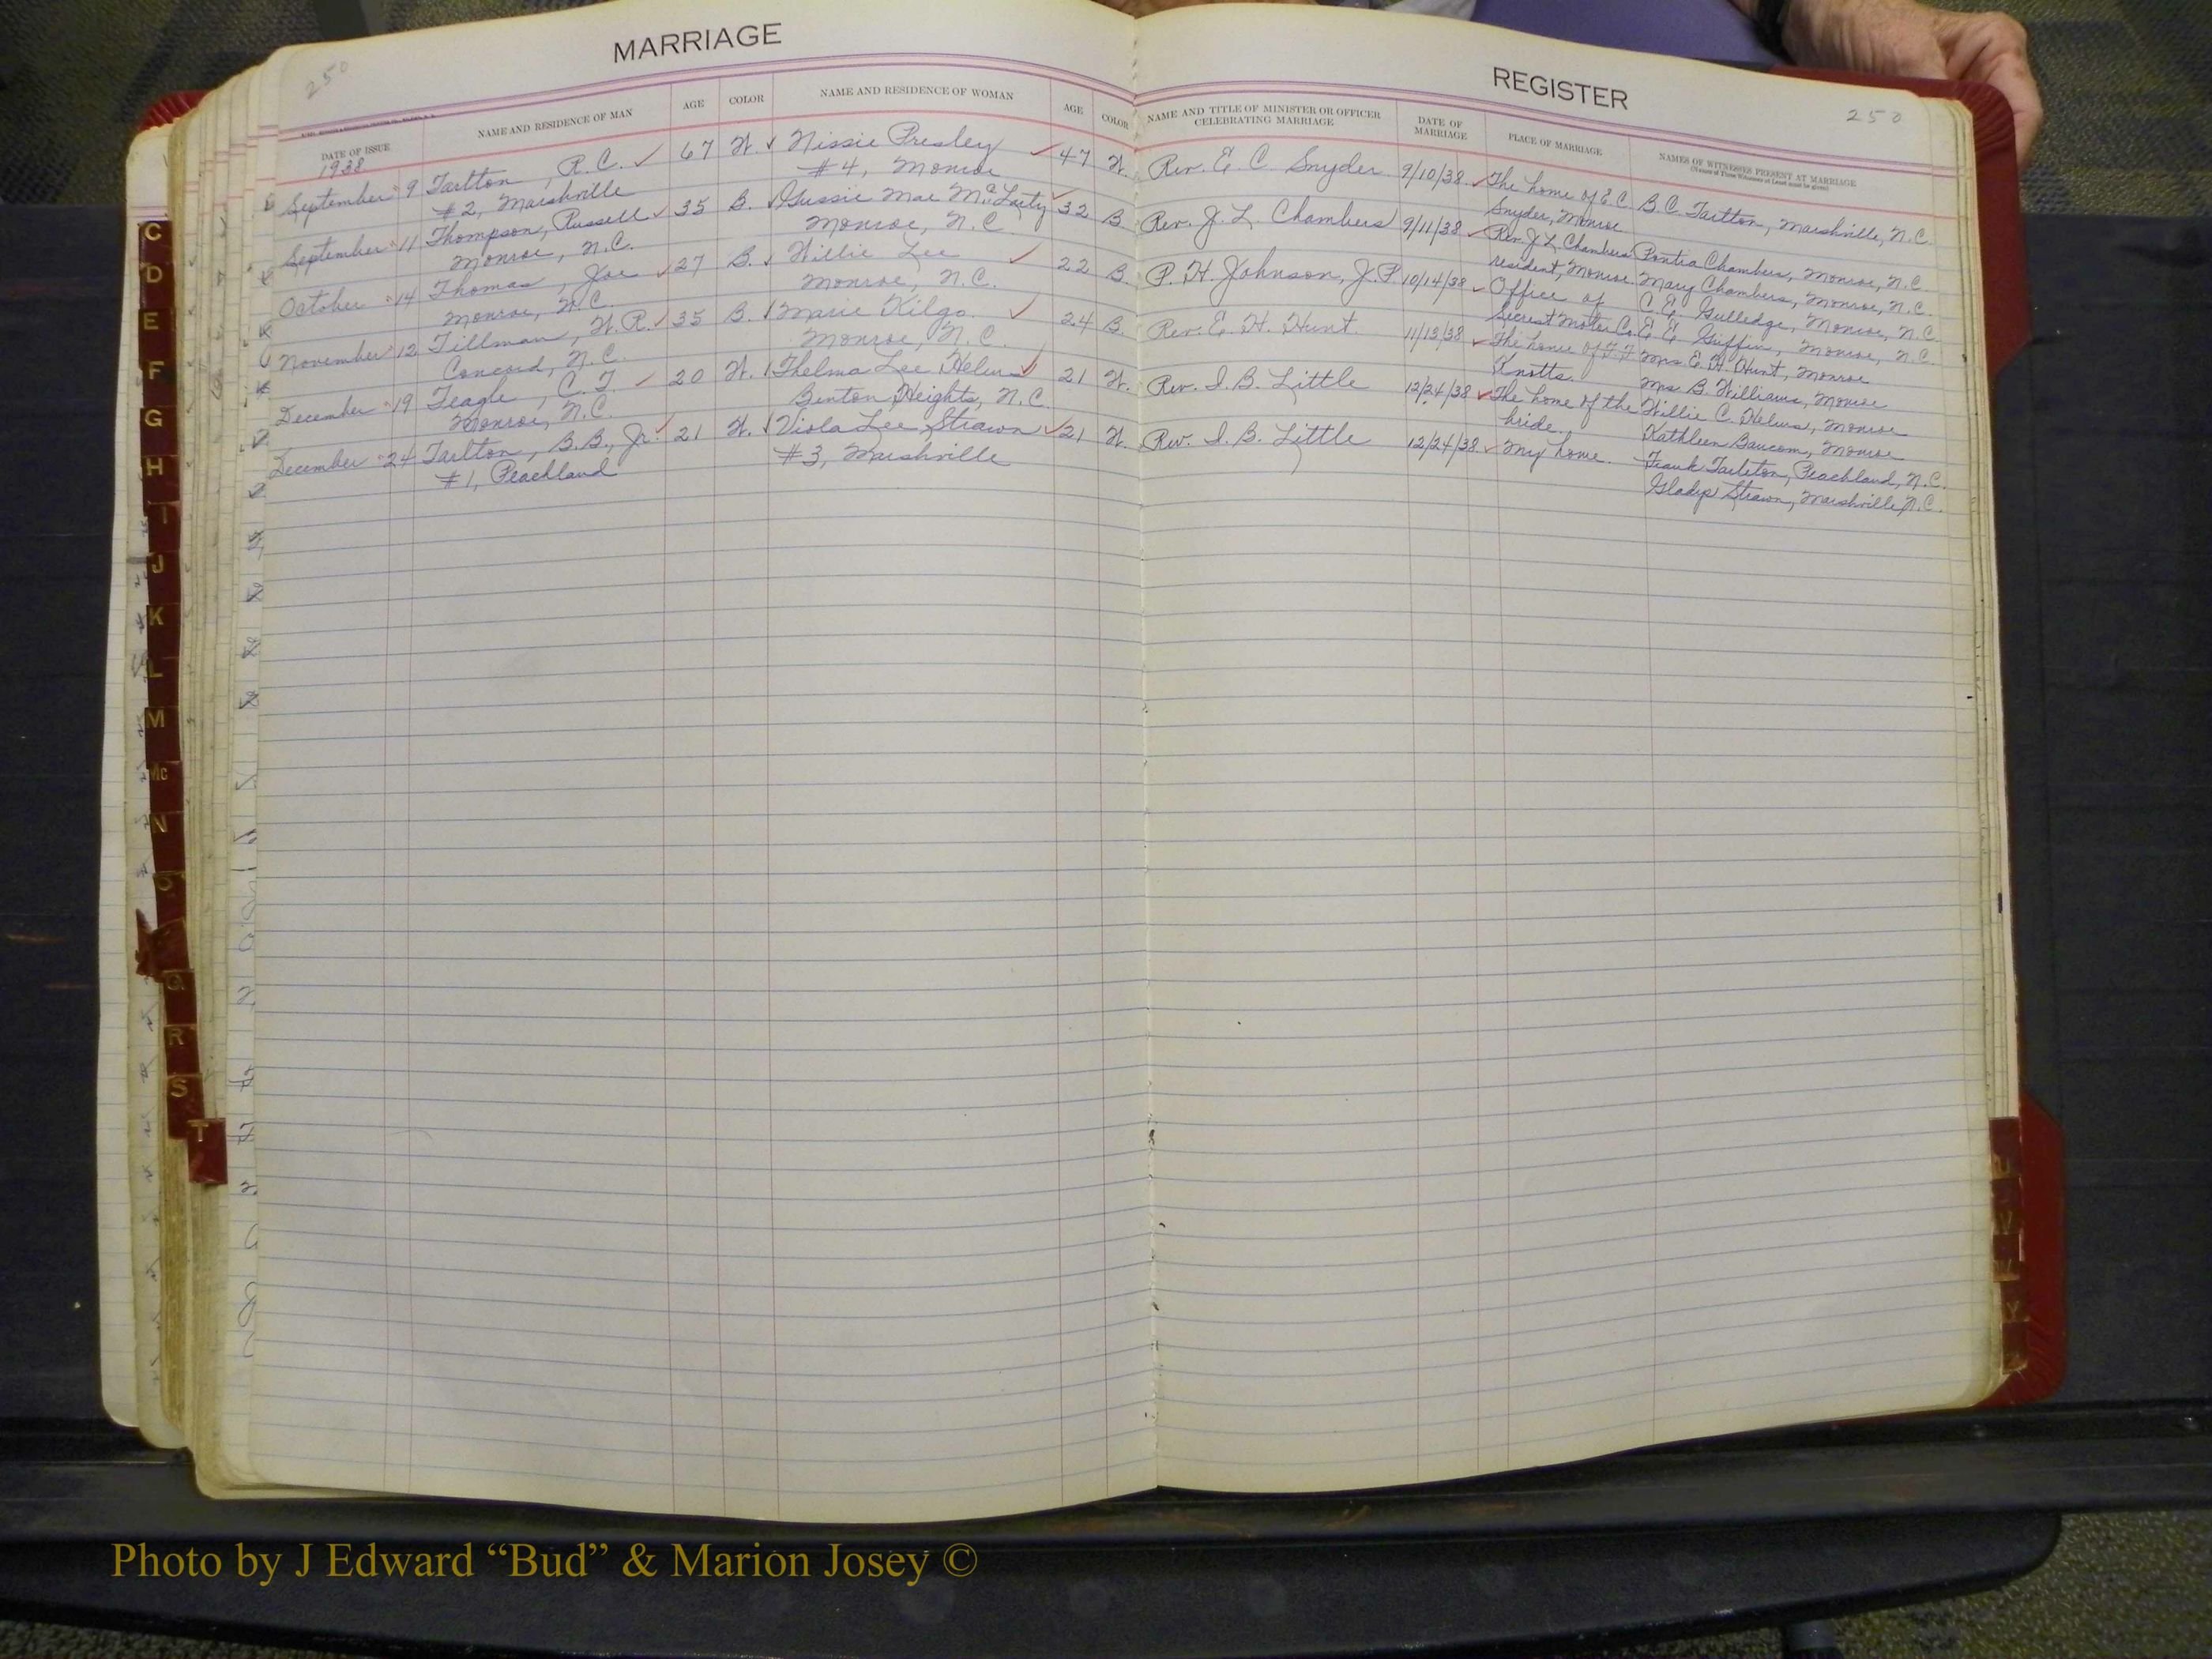 MARRIAGE
REGISTER
250
250
DATE OF ISSUE
NAME AND RESIDENCE OF MAN
AGE
COLOR
NAME AND RESIDENCE OF WOMAN
AGE
COLOR
NAME AND TITLE OF MINISTER OR OFFICER
CELEBRATING MARRIAGE
DATE OF
MARRIAGE
PLACE OF MARRIAGE
NAMES OF WITNESSES PRESENT AT MARRIAGE
(Names of Three Witnesses at Least must be given)
1938
September 9 Tarlton, R.C. ✓ 67 W. ✓ Nissie Presley ✓ 47 W. Rev. E. C. Snyder 9/10/38 ✓ The home of E C B.C. Tarlton, Marshville, N.C.
#2, Marshville #4, Monroe Snyder, Monroe
September 11 Thompson, Russell ✓ 35 B. ✓ Gussie Mae McLarty ✓ 32 B. Rev. J. L. Chambers 9/11/38 ✓ Rev. J L Chambers Pontia Chambers, Monroe, N.C.
Monroe, N.C. Monroe, N.C. resident, Monroe. Mary Chambers, Monroe, N.C.
October 14 Thomas, Joe ✓ 27 B. ✓ Willie Lee ✓ 22 B. P. H. Johnson, J.P. 10/14/38 ✓ Office of C. E. Gulledge, Monroe, N.C.
Monroe, N.C. Monroe, N.C. Secrest Motor Co. E. E. Griffin, Monroe, N.C.
November 12 Tillman, W.R. ✓ 35 B. ✓ Marie Kilgo ✓ 24 B. Rev. E. H. Hunt 11/13/38 ✓ The home of Mrs E. H. Hunt, Monroe
Concord, N.C. Monroe, N.C. Knotts. Mrs B. Williams, Monroe
December 19 Teagle, C. T ✓ 20 W. ✓ Thelma Lee Helms ✓ 21 W. Rev. I. B. Little 12/24/38 ✓ The home of the Willie C. Helms, Monroe
Monroe, N.C. Benton Heights, N.C. bride. Kathleen Baucom, Monroe
December 24 Tarlton, B.B., Jr. ✓ 21 W. ✓ Viola Lee Strawn ✓ 21 W. Rev. I. B. Little 12/24/38 ✓ My home. Frank Tarleton, Peachland, N.C.
#1, Peachland #3, Marshville Gladys Strawn, Marshville, N.C.
C
D
E
F
G
H
I
J
K
L
M
Mc
N
O
Q
R
S
T
U
V
W
Y
Photo by J Edward “Bud” & Marion Josey ©